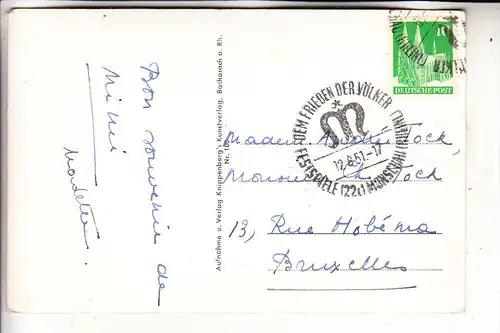 Bon souvenir de
Mimi
Aufnahme u. Verlag Knippenberg's Kunstverlag, Bacharach a. Rh.
Nr. 10
10
DEUTSCHE POST
DEM FRIEDEN DER VÖLKER
FESTSPIELE (22c) MONSCHAU
12.8.51.-17
Madame
Monsieur Tock
13, Rue Hobéma
Bruxelles